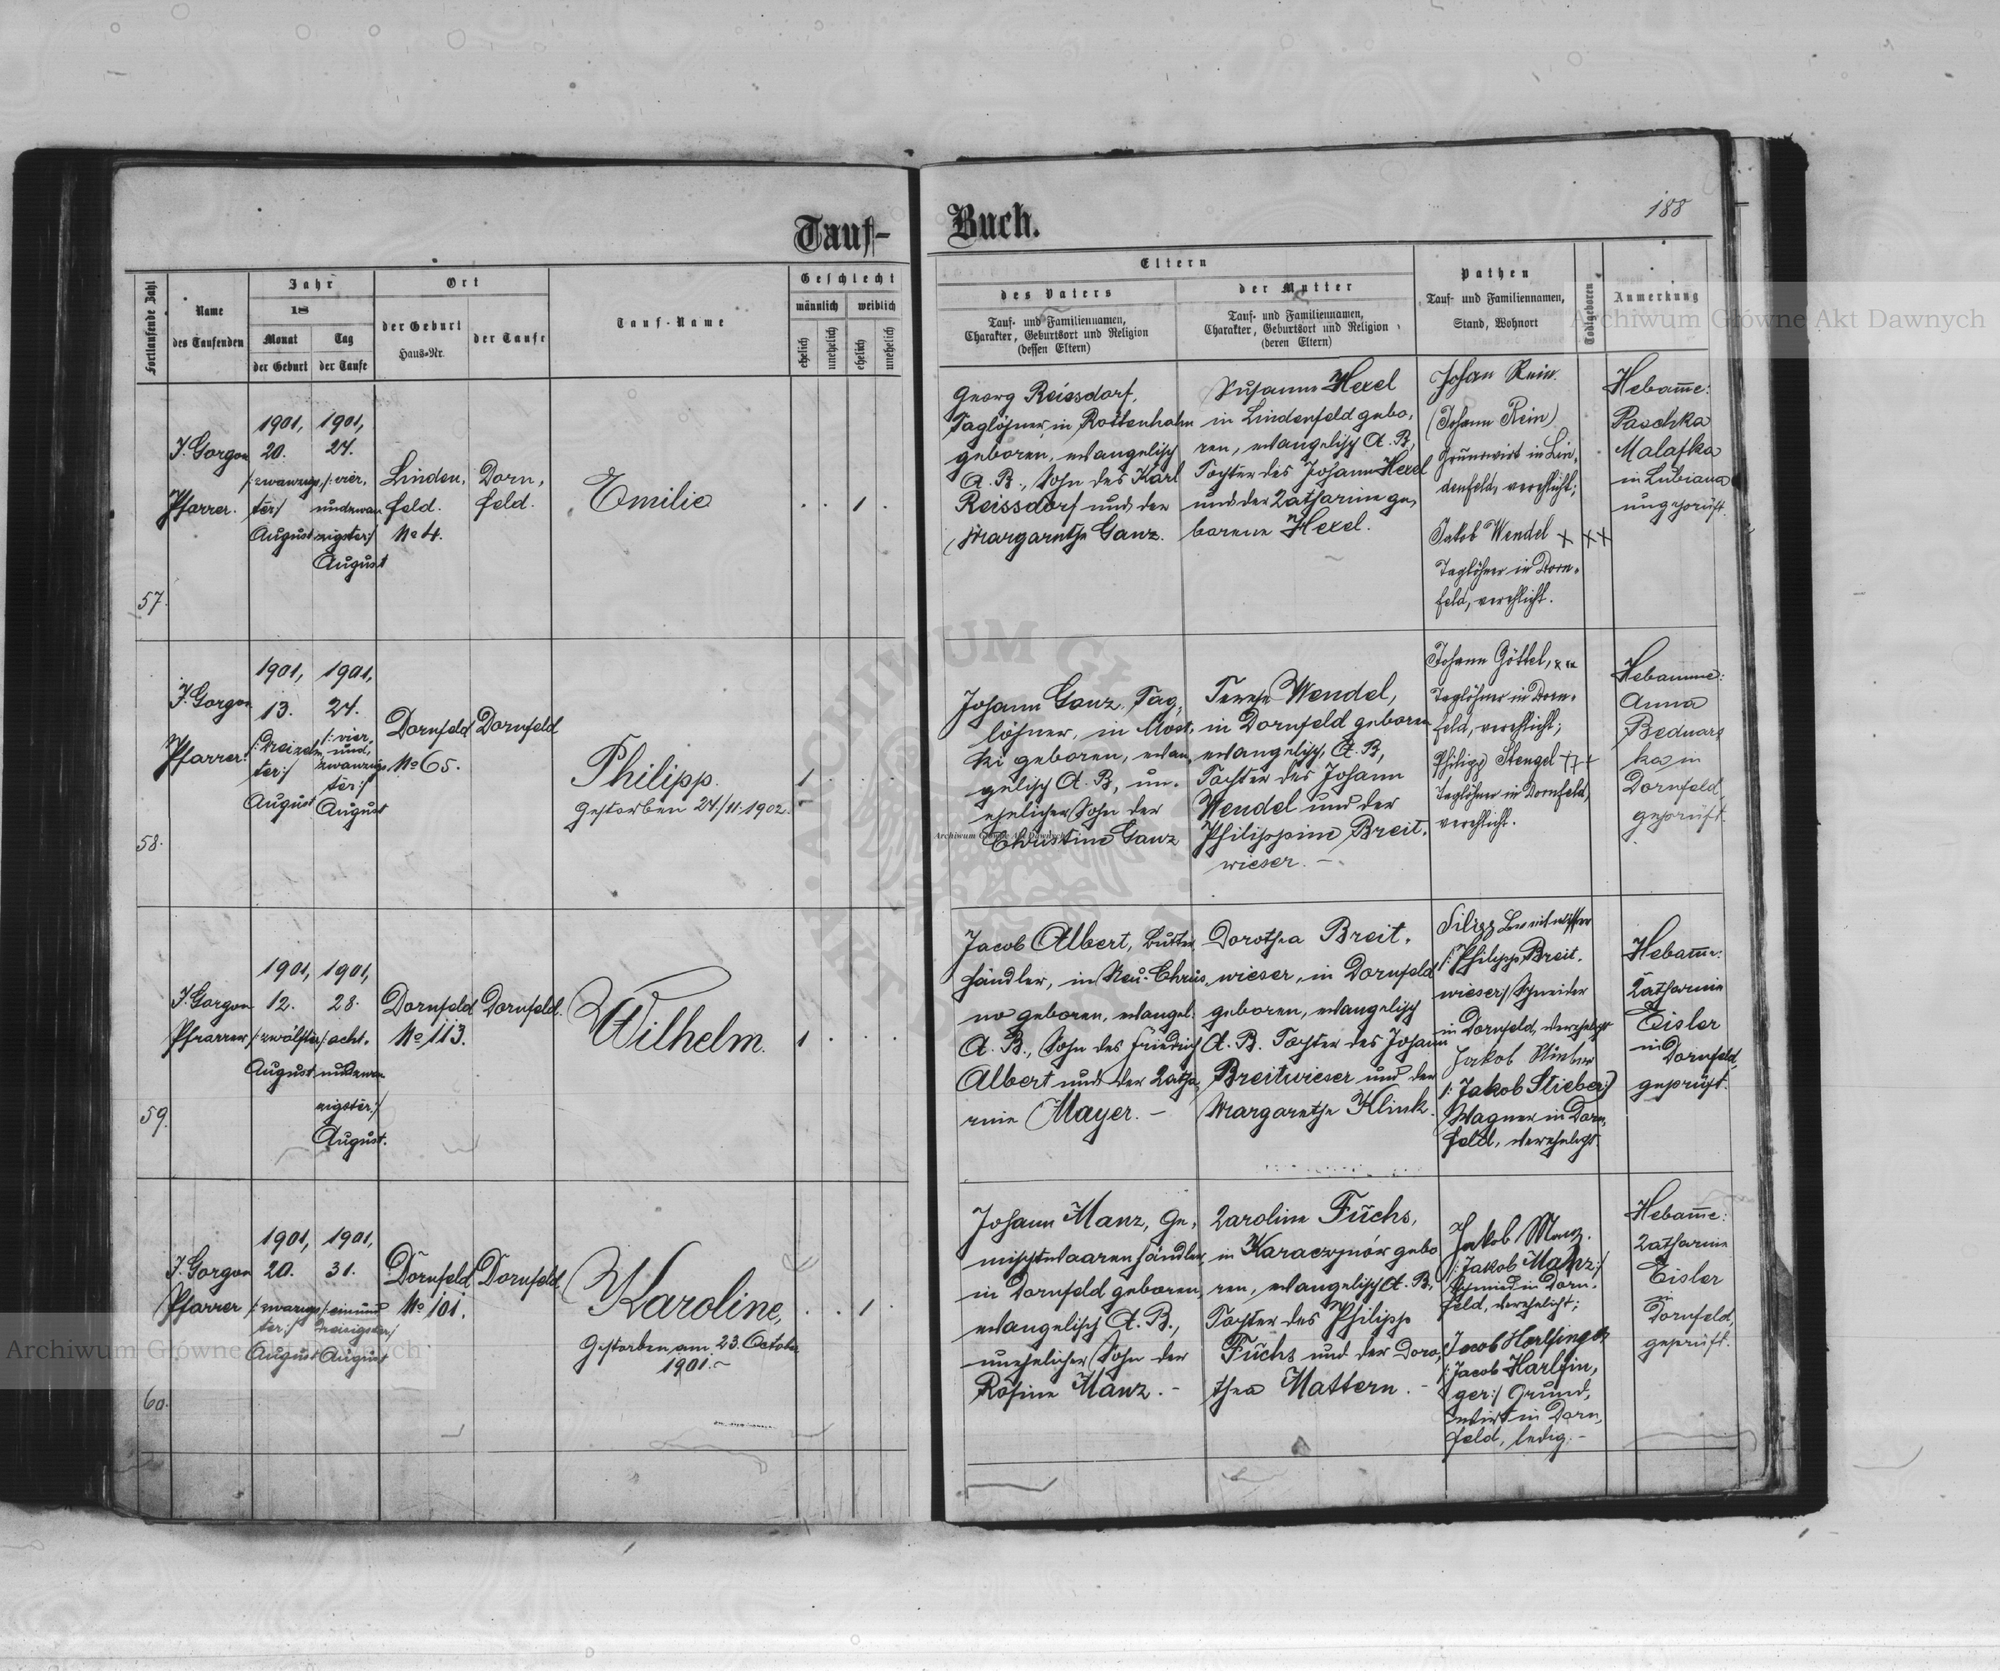 188
Tauf-Buch.
Fortlaufende Zahl
Name
des Taufenden
Jahr
18
Monat
Tag
der Geburt
der Taufe
Ort
der Geburt
Haus-Nr.
der Taufe
Tauf-Name
Geschlecht
männlich
weiblich
ehelich
unehelich
ehelich
unehelich
Eltern
des Vaters
Tauf- und Familiennamen,
Charakter, Geburtsort und Religion
(dessen Eltern)
der Mutter
Tauf- und Familiennamen,
Charakter, Geburtsort und Religion
(deren Eltern)
Pathen
Tauf- und Familiennamen,
Stand, Wohnort
Todtgeboren
Anmerkung
57.
J. Gorgon
Pfarrer.
1901,
20.
/:zwanzigs,
ter:/
August
1901,
24.
/:vier,
undzwan
zigster:/
August
Linden,
feld.
No 4.
Dorn,
feld.
Emilie
. . 1 .
Georg Reissdorf,
Taglöhner, in Rottenhahn
geboren, evangelisch
A. B., Sohn des Karl
Reissdorf und der
Margarethe Ganz.
Susanna Hexel
in Lindenfeld gebo,
ren, evangelisch A. B,
Tochter des Johann Hexel
und der Katharine ge,
borene Hexel.
Johan Rein.
(Johann Rein)
Grundwirt in Lin,
denfeld, verehlicht;
Jakob Wendel + ++
Taglöhner in Dorn,
feld, verehlicht.
Hebamme:
Paschka
Malafka
in Lubiana
ungeprüft.
58.
J. Gorgon
Pfarrer.
1901,
13.
/:dreizehn
ter:/
August
1901,
24.
/:vier,
und,
zwanzigs
ter:/
August
Dornfeld
No 65.
Dornfeld
Philipp.
Gestorben 24./11. 1902.
1 . . .
Johann Ganz, Tag,
löhner, in Most,
ki geboren, evan,
gelisch A. B., un,
ehelicher Sohn der
Christine Ganz
Terese Wendel,
in Dornfeld geboren
evangelisch A. B,
Tochter des Johann
Wendel und der
Philippine Breit,
wieser. —
Johann Göttel, xxx
Taglöhner in Dorn,
feld, verehlicht;
Philipp Stengel +++
Taglöhner in Dornfeld,
verehlicht.
Hebamme:
Anna
Bednars
ka in
Dornfeld,
geprüft.
59.
J. Gorgon
Pfarrer
1901,
12.
/:zwölfter:/
August
1901,
28.
acht,
undzwan
zigster:/
August.
Dornfeld
No 113.
Dornfeld.
Wilhelm.
1 . . .
Jacob Albert, Butter
händler, in Neu-Chrus,
no geboren, evangel.
A. B., Sohn des Friedrich
Albert und der Katha,
rine Mayer. —
Dorothea Breit,
wieser, in Dornfeld
geboren, evangelisch
A. B. Tochter des Johann
Breitwieser und der
Margarethe Klink.
/:Philipp Breit,
wieser:/ Schneider
in Dornfeld, verehelicht
Jakob Stieber
/:Jakob Stieber:/
Wagner in Dorn,
feld, verehelicht.
Hebamme:
Katharine
Eisler
in Dornfeld,
geprüft.
60.
J. Gorgon
Pfarrer
1901,
20.
/:zwanzigs
ter:/
August
1901,
31.
/:einund
dreisigster:/
August
Dornfeld
No 101.
Dornfeld
Karoline,
Gestorben am 23. October
1901. —
. . 1 .
Johann Manz, Ge,
mischtwaarenhändler,
in Dornfeld geboren,
evangelisch A. B.,
unehelicher Sohn der
Rosine Manz. -
Karoline Fuchs,
in Karaczynów gebo
ren, evangelisch A. B,
Tochter des Philipp
Fuchs und der Doro,
thea Mattern. -
Jakob Manz.
/:Jakob Manz:/
Schmied in Dorn,
feld, verehelicht;
Jacob Harlfinger
/:Jacob Harlfin,
ger:/ Grund,
wirt in Dorn,
feld, ledig. -
Hebamme:
Katharine
Eisler
in
Dornfeld,
geprüft.
Archiwum Główne Akt Dawnych
Archiwum Główne Akt Dawnych
Archiwum Główne Akt Dawnych